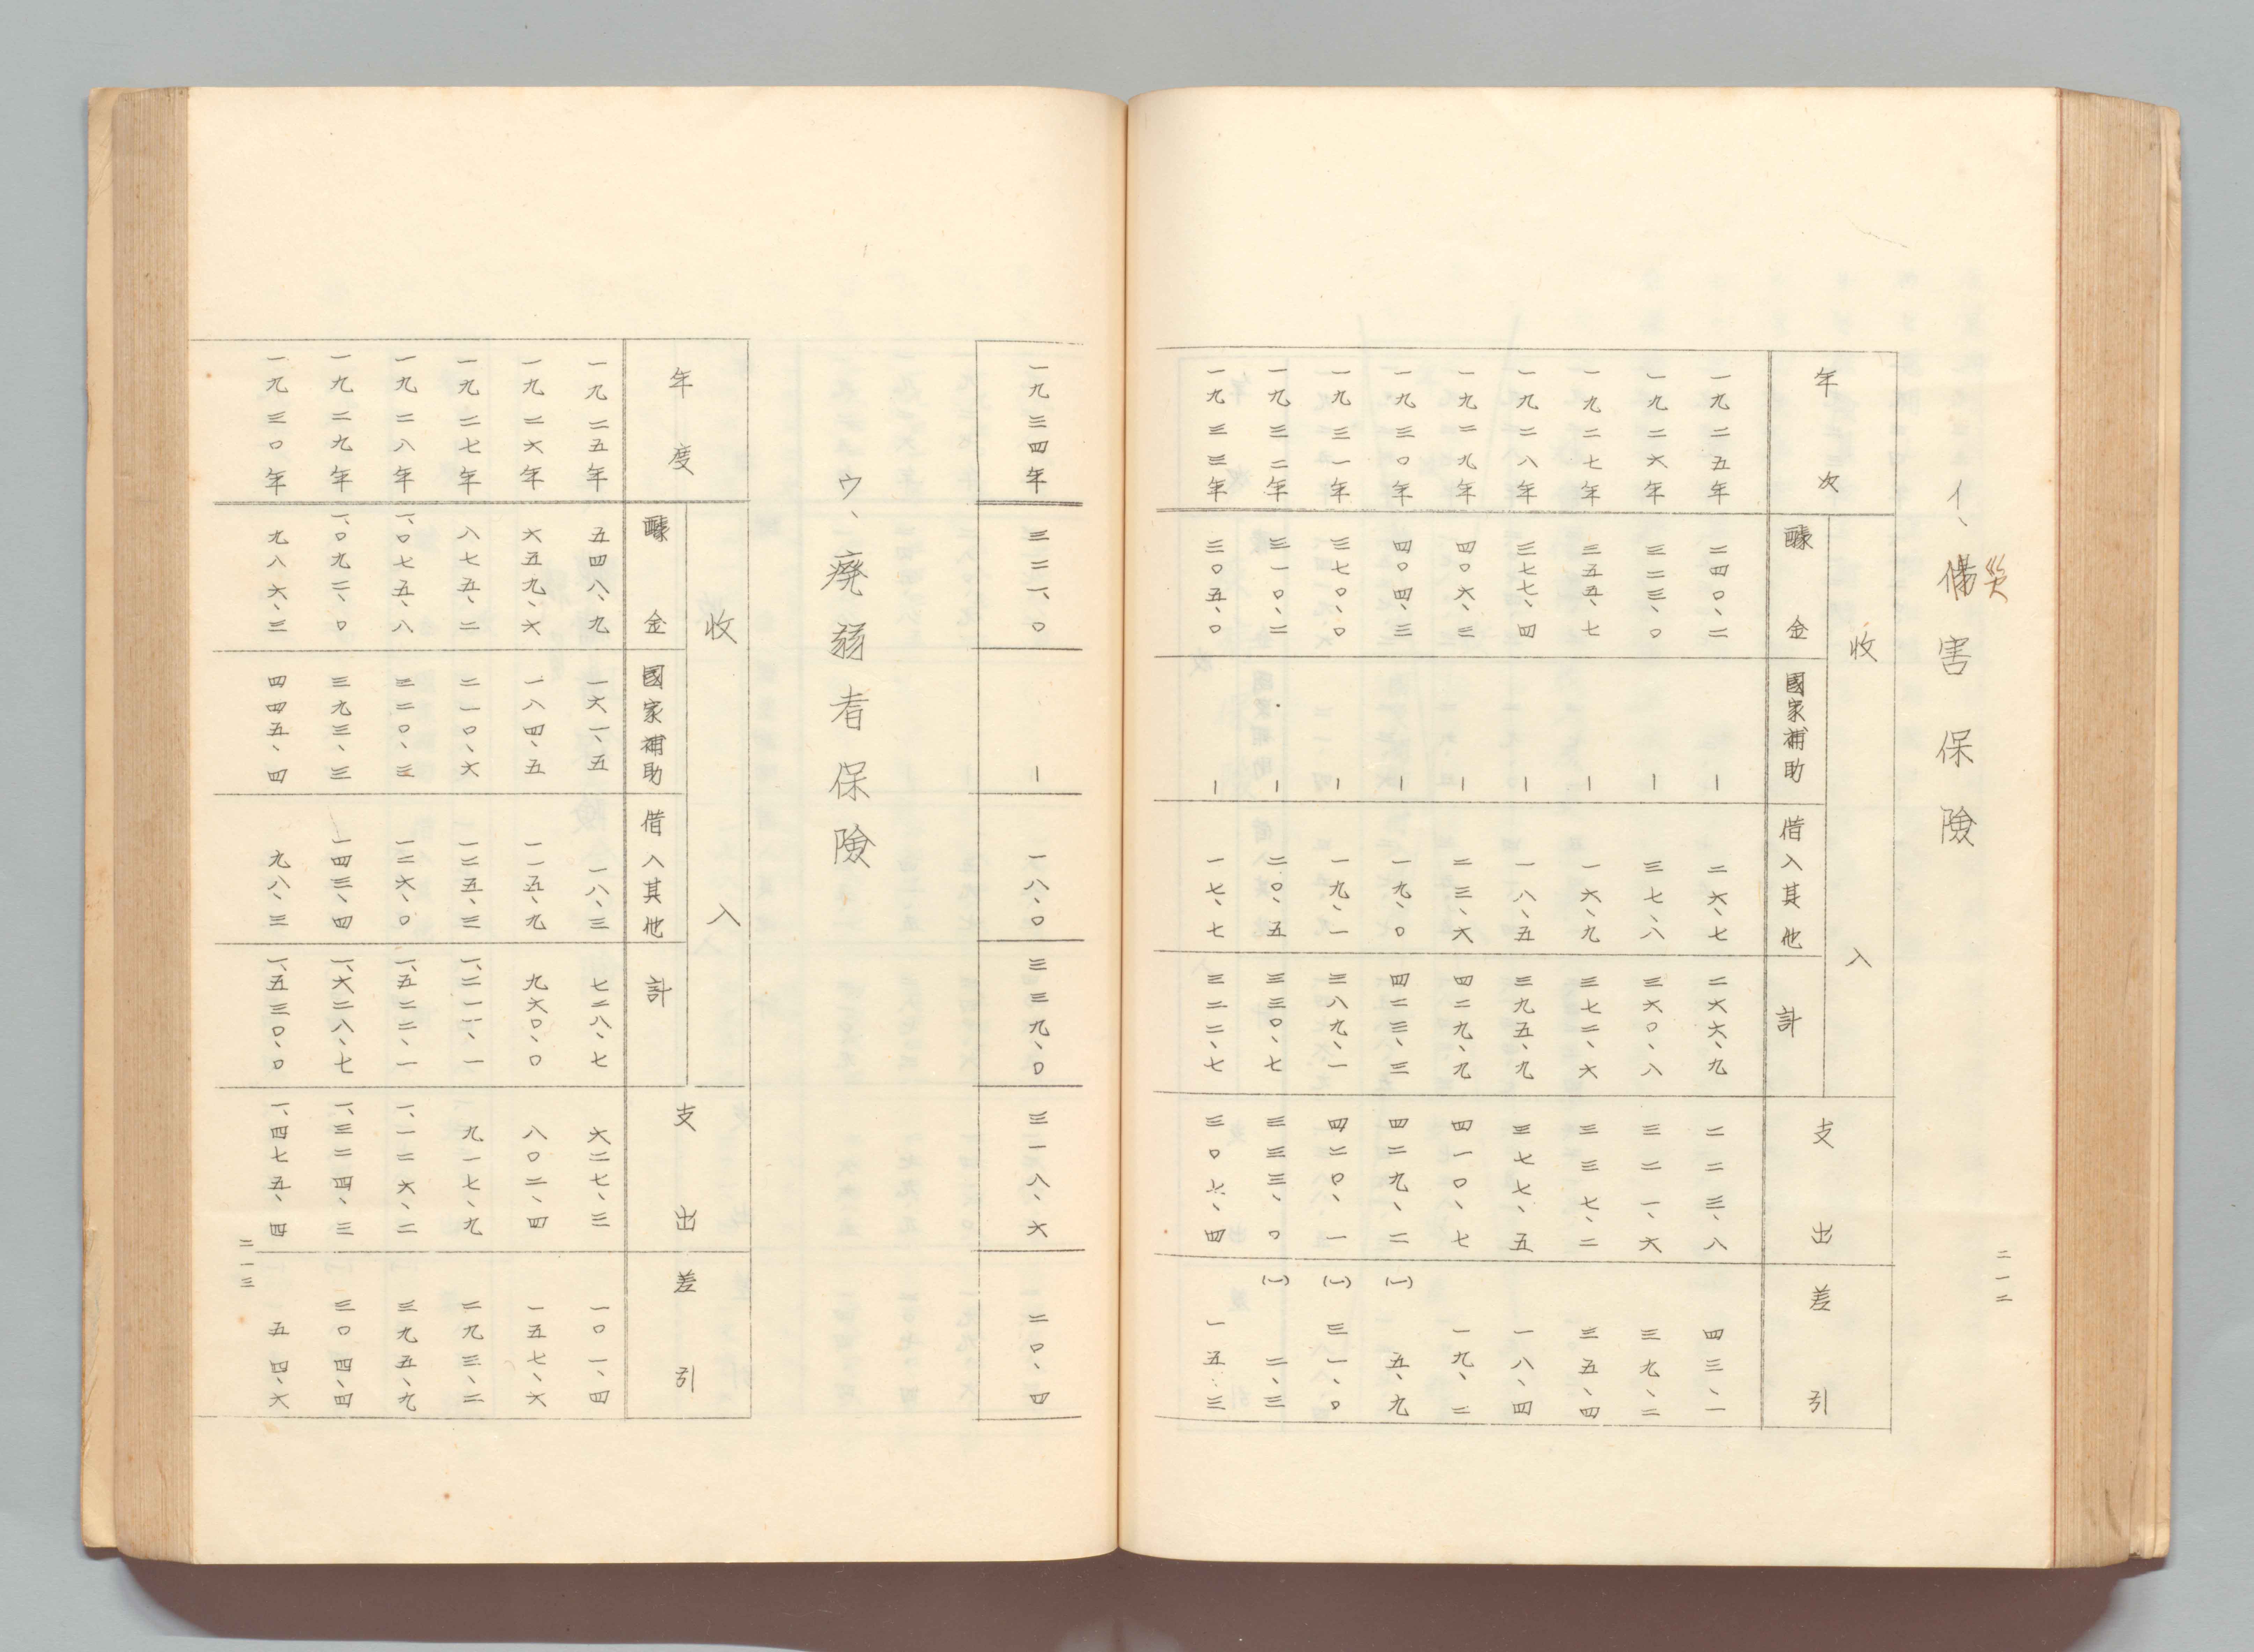 二一二
イ、傷害保險
災
年次
收入
醵金
國家補助
借入其他
計
支出
差引
一九二五年 二四〇、二 ー 二六、七 二六六、九 二二三、八 四三、一
一九二六年 三二三、〇 ー 三七、八 三六〇、八 三二一、六 三九、二
一九二七年 三五五、七 ー 一六、九 三七二、六 三三七、二 三五、四
一九二八年 三七七、四 ー 一八、五 三九五、九 三七七、五 一八、四
一九二九年 四〇六、三 ー 二三、六 四二九、九 四一〇、七 一九、二
一九三〇年 四〇四、三 ー 一九、〇 四二三、三 四二九、二 (一) 五、九
一九三一年 三七〇、〇 ー 一九、一 三八九、一 四二〇、一 (一) 三一、〇
一九三二年 三一〇、二 ー 二〇、五 三三〇、七 三三三、〇 (一) 二、三
一九三三年 三〇五、〇 ー 一七、七 三二二、七 三〇六、四 一五、三
一九三四年 三二一、〇 ー 一八、〇 三三九、〇 三一八、六 二〇、四
ウ、廃弱者保險
年度
收入
醵金
國家補助
借入其他
計
支出
差引
一九二五年 五四八、九 一六一、五 一八、三 七二八、七 六二七、三 一〇一、四
一九二六年 六五九、六 一八四、五 一一五、九 九六〇、〇 八〇二、四 一五七、六
一九二七年 八七五、二 二一〇、六 一二五、三 一、二一一、一 九一七、九 二九三、二
一九二八年 一、〇七五、八 三二〇、三 一二六、〇 一、五二二、一 一、一二六、二 三九五、九
一九二九年 一、〇九二、〇 三九三、三 一四三、四 一、六二八、七 一、三二四、三 三〇四、四
一九三〇年 九八六、三 四四五、四 九八、三 一、五三〇、〇 一、四七五、四 五四、六
二一三